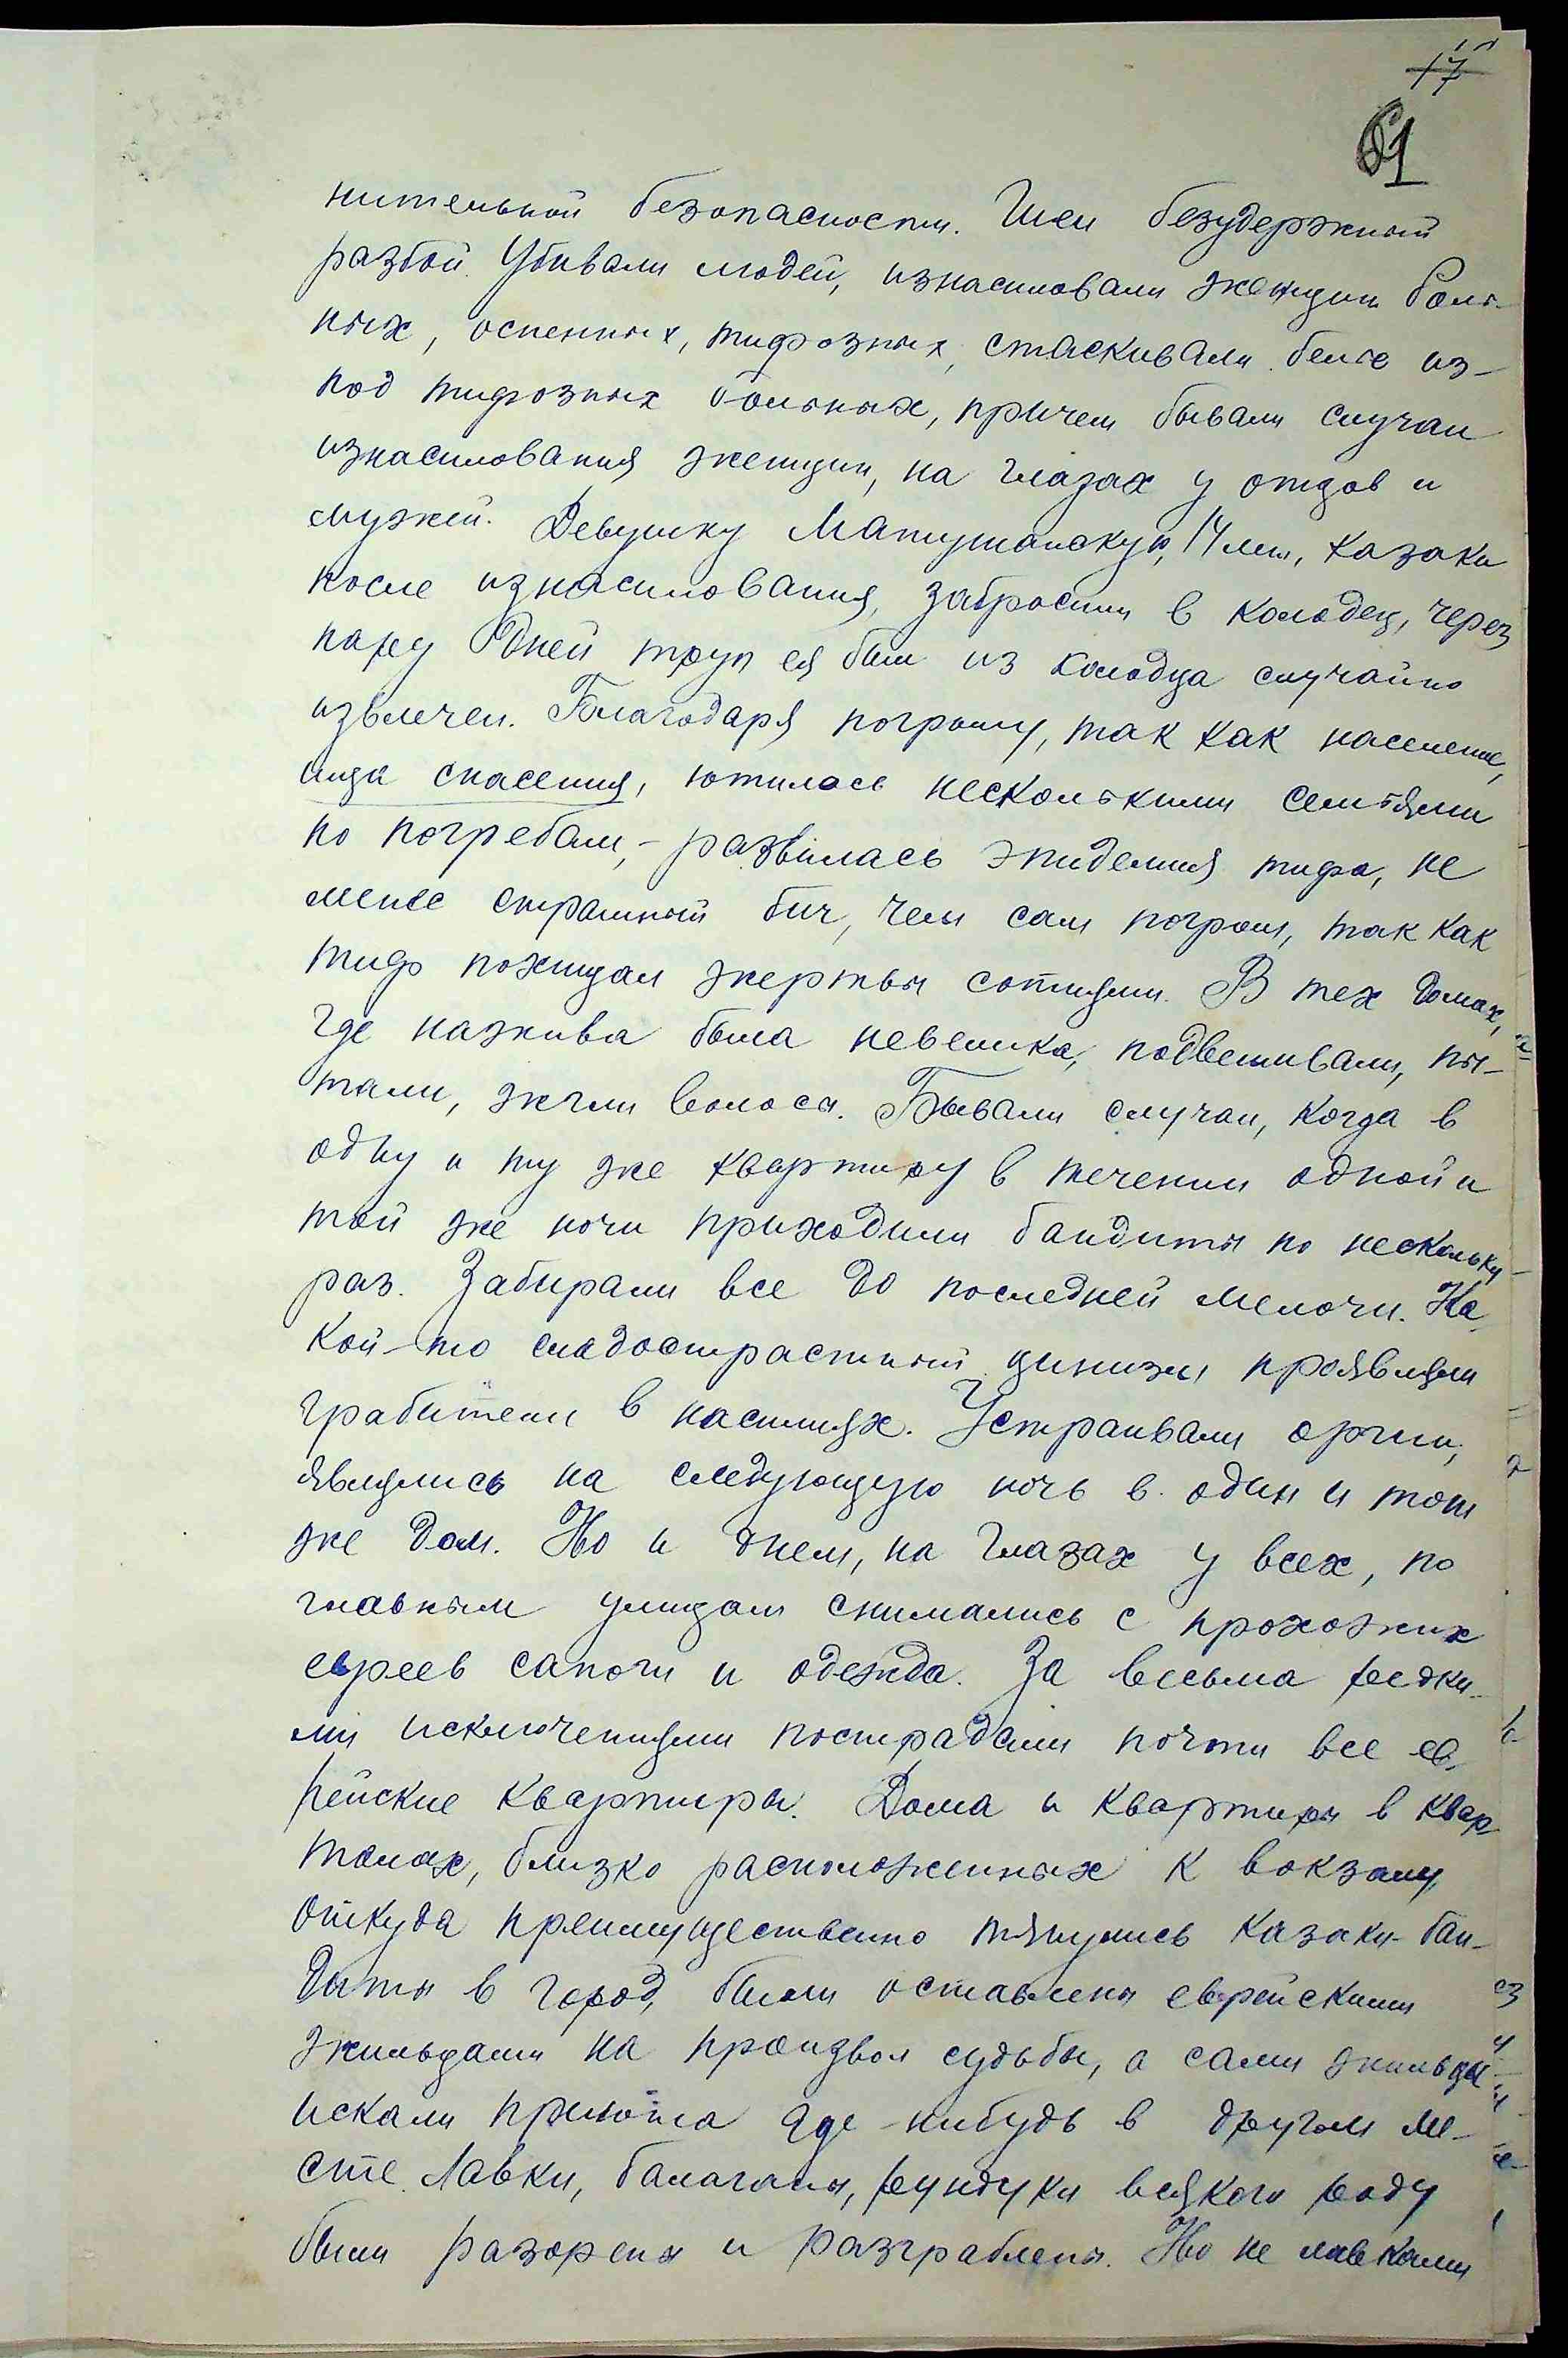 17
61
нительной безопасности. Шел безудержный
разбой. Убивали людей, изнасиловали женщин боль-
ных, оспенных, тифозных, стаскивали белье из-
под тифозных больных, причем бывали случаи
изнасилования женщин, на глазах у отцов и
мужей. Девушку 14 лет, казаки
после изнасилования, забросили в колодец, через
пару дней труп ея был из колодца случайно
извлечен. Благодаря погрому, так как население,
ища спасения, ютилось несколькими семьями
по погребам, - развилась эпидемия тифа, не
менее страшный бич, чем сам погром, так как
тиф похищал жертвы сотнями. В тех домах,
где нажива была невелика, подвешивали, пы-
тали, жгли волосы. Бывали случаи, когда в
одну и ту же квартиру в течении одной и
той же ночи приходили бандиты по нескольку
раз. Забирали все до последней мелочи. Ка
кой-то сладострастный цинизм проявляли
грабители в насилиях. Устраивали оргии,
являлись на следующую ночь в один и тот
же дом. Но и днем, на глазах у всех, по
главным улицам снимались с прохожих
евреев сапоги и одежда. За весьма редки-
ми исключениями пострадали почти все ев-
рейские квартиры. Дома и квартиры в квар
талах, близко расположенных к вокзалу,
откуда преимущественно тянулись казаки-бан-
диты в город, были оставлены еврейскими
жильцами на произвол судьбы, а сами жильцы
искали приюта где-нибудь в другом ме-
сте. Лавки, балаганы, рундуки всякого роду
были разорены и разграблены. Но не лавками